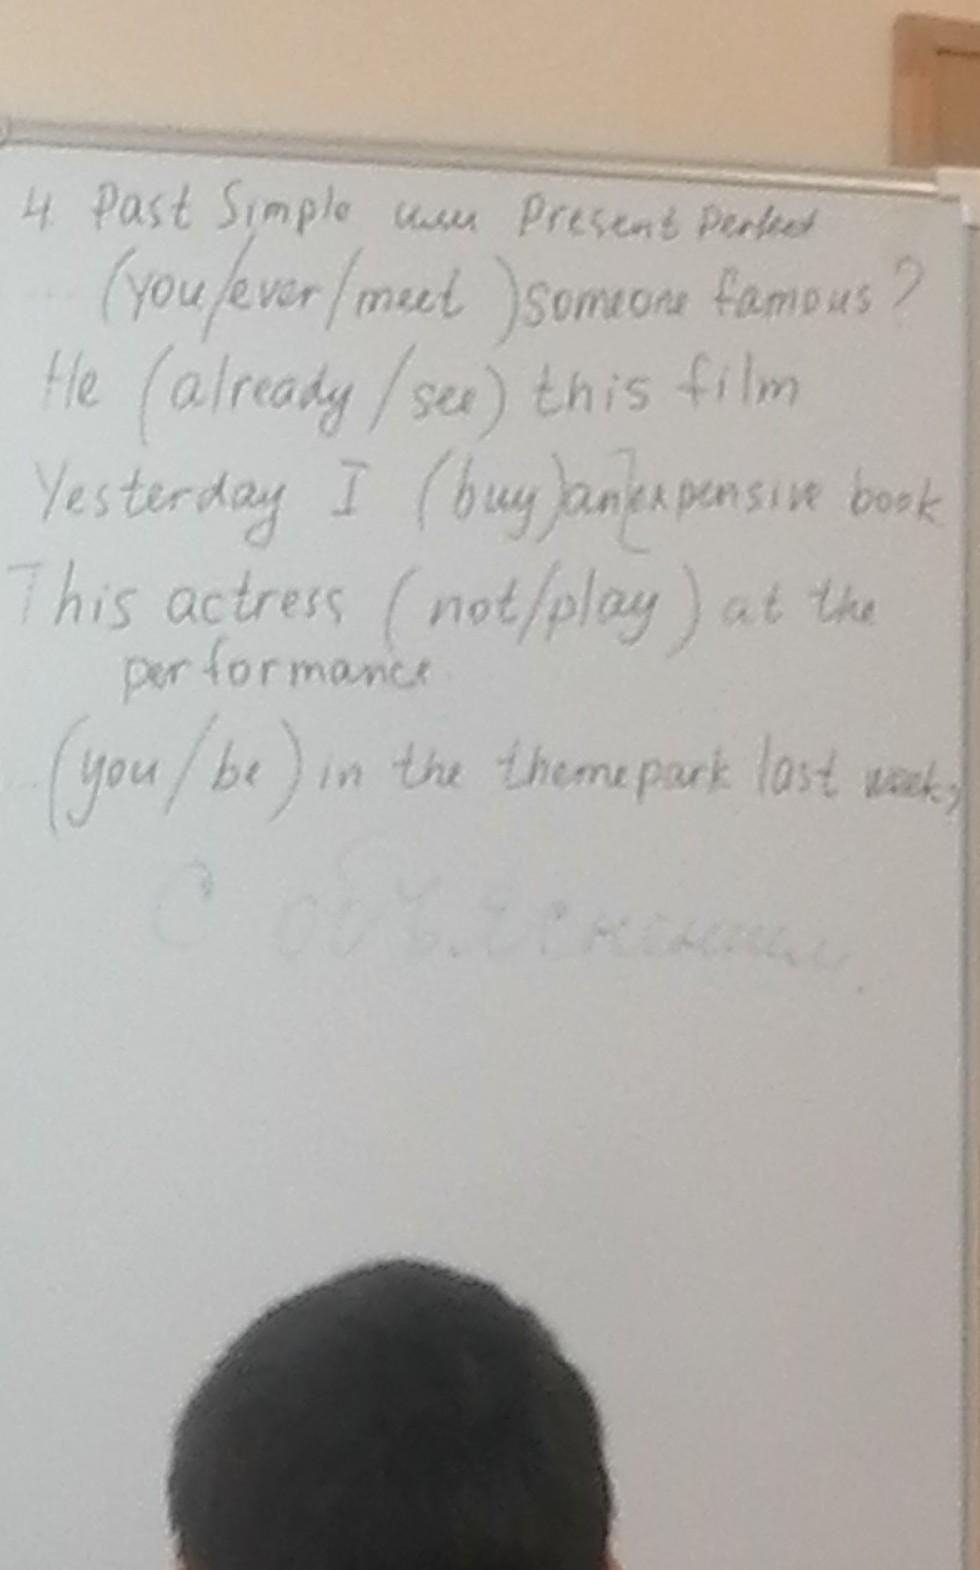 4. Past Simple или Present Perfect
... (you/ever/meet) someone famous?
He (already/see) this film
Yesterday I (buy) an expensive book
This actress (not/play) at the
performance
... (you/be) in the themepark last week?
С объяснением.